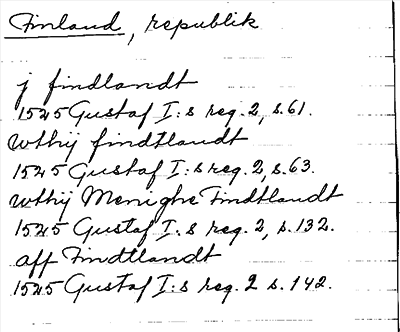 Finland, republik
j findlandt
1525 Gustaf I:s reg. 2, s.61.
wthij findtlandt
1525 Gustaf I:s reg. 2, s.63.
wthij Menighe Findtlandt
1525 Gustaf I:s reg. 2, s.132.
aff Findtlandt
1525 Gustaf I:s reg. 2 s.142.